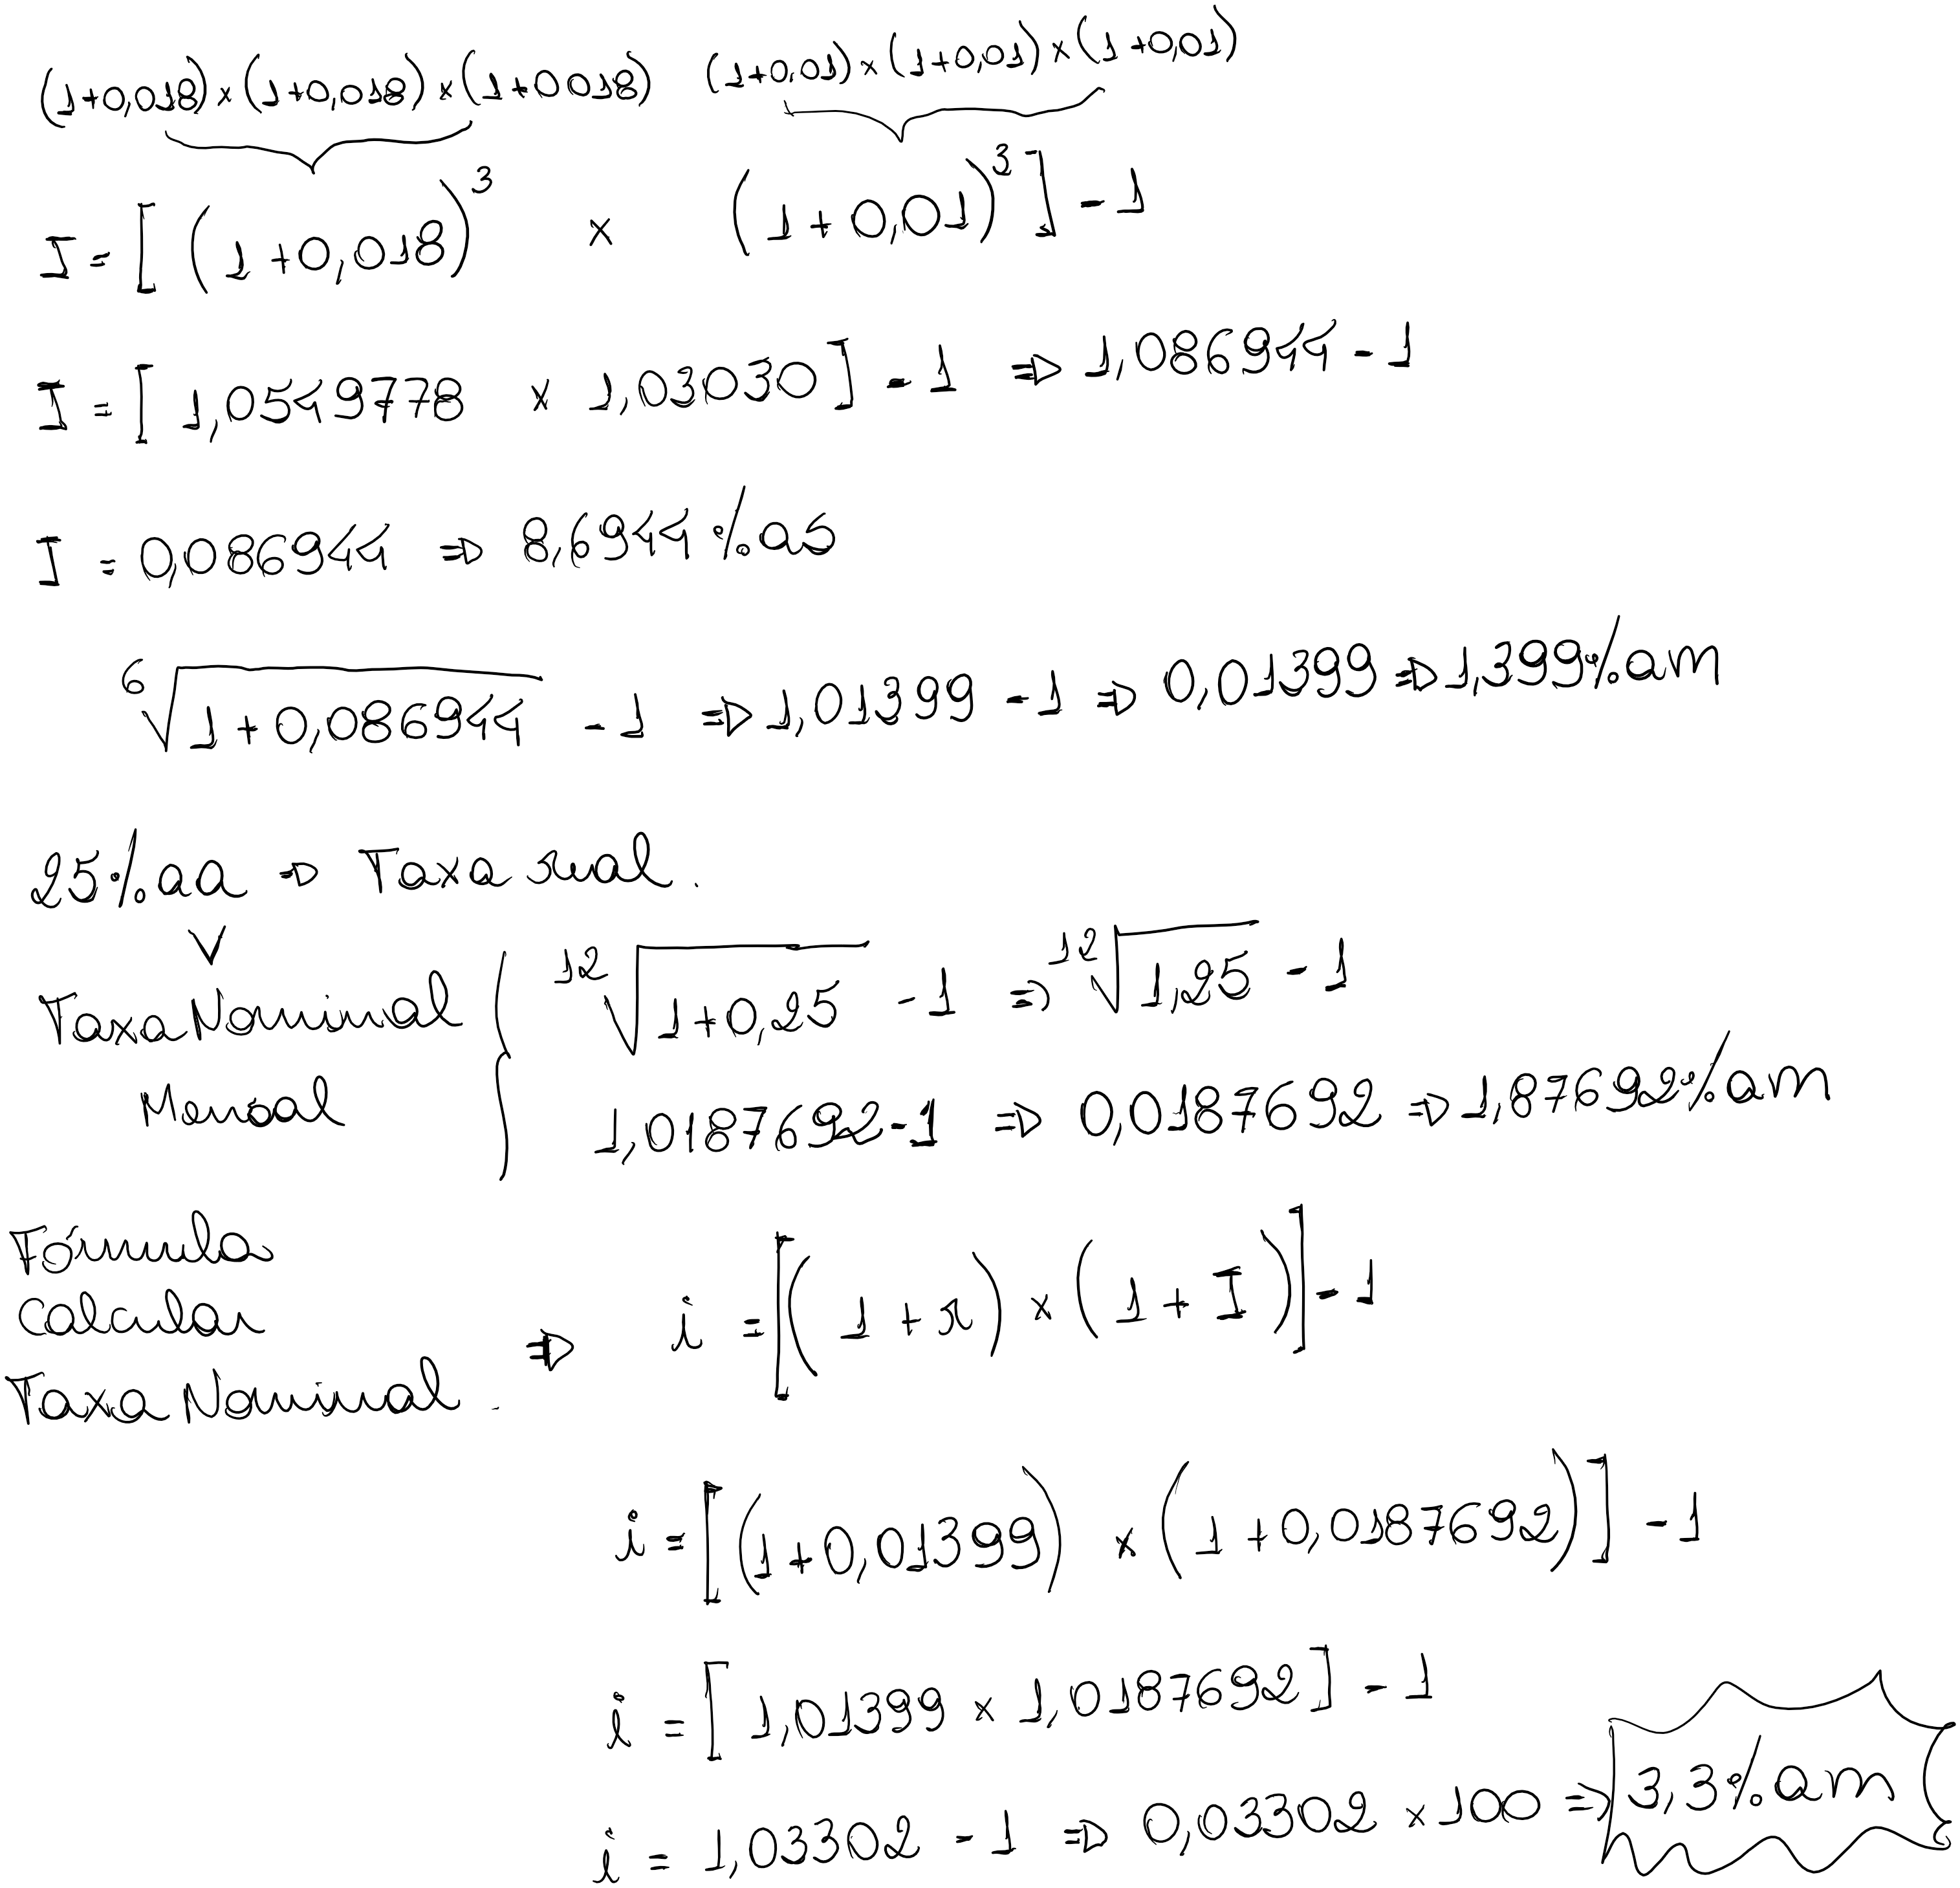 (1+0,018) x (1+0,018) x (1+0018) (1+0,01) x (1+0,01) x (1+0,01)
I = [ (1+0,018)³ x (1+0,01)³ ] - 1
I = [ 1,0549778 x 1,03030 ] - 1 ⇒ 1,086944 - 1
I = 0,086944 ⇒ 8,6944%.as
⁶√1+0,086944 - 1 ⇒ 1,01399 - 1 ⇒ 0,01399 ⇒ 1,399%am
25%aa ⇒ Taxa real.
Taxa Nominal { ¹²√1+0,25 - 1 ⇒ ¹²√1,25 - 1
Mensal 1,0187692-1 ⇒ 0,0187692 ⇒ 1,87692%am
Fórmula
Calcular
Taxa Nominal. ⇒ i = [(1+r) x (1+I)] - 1
i = [(1+0,01399) x (1+0,0187692)] - 1
i = [1,01399 x 1,0187692] - 1
i = 1,03302 - 1 ⇒ 0,03302 x 100 ⇒ 3,3%am